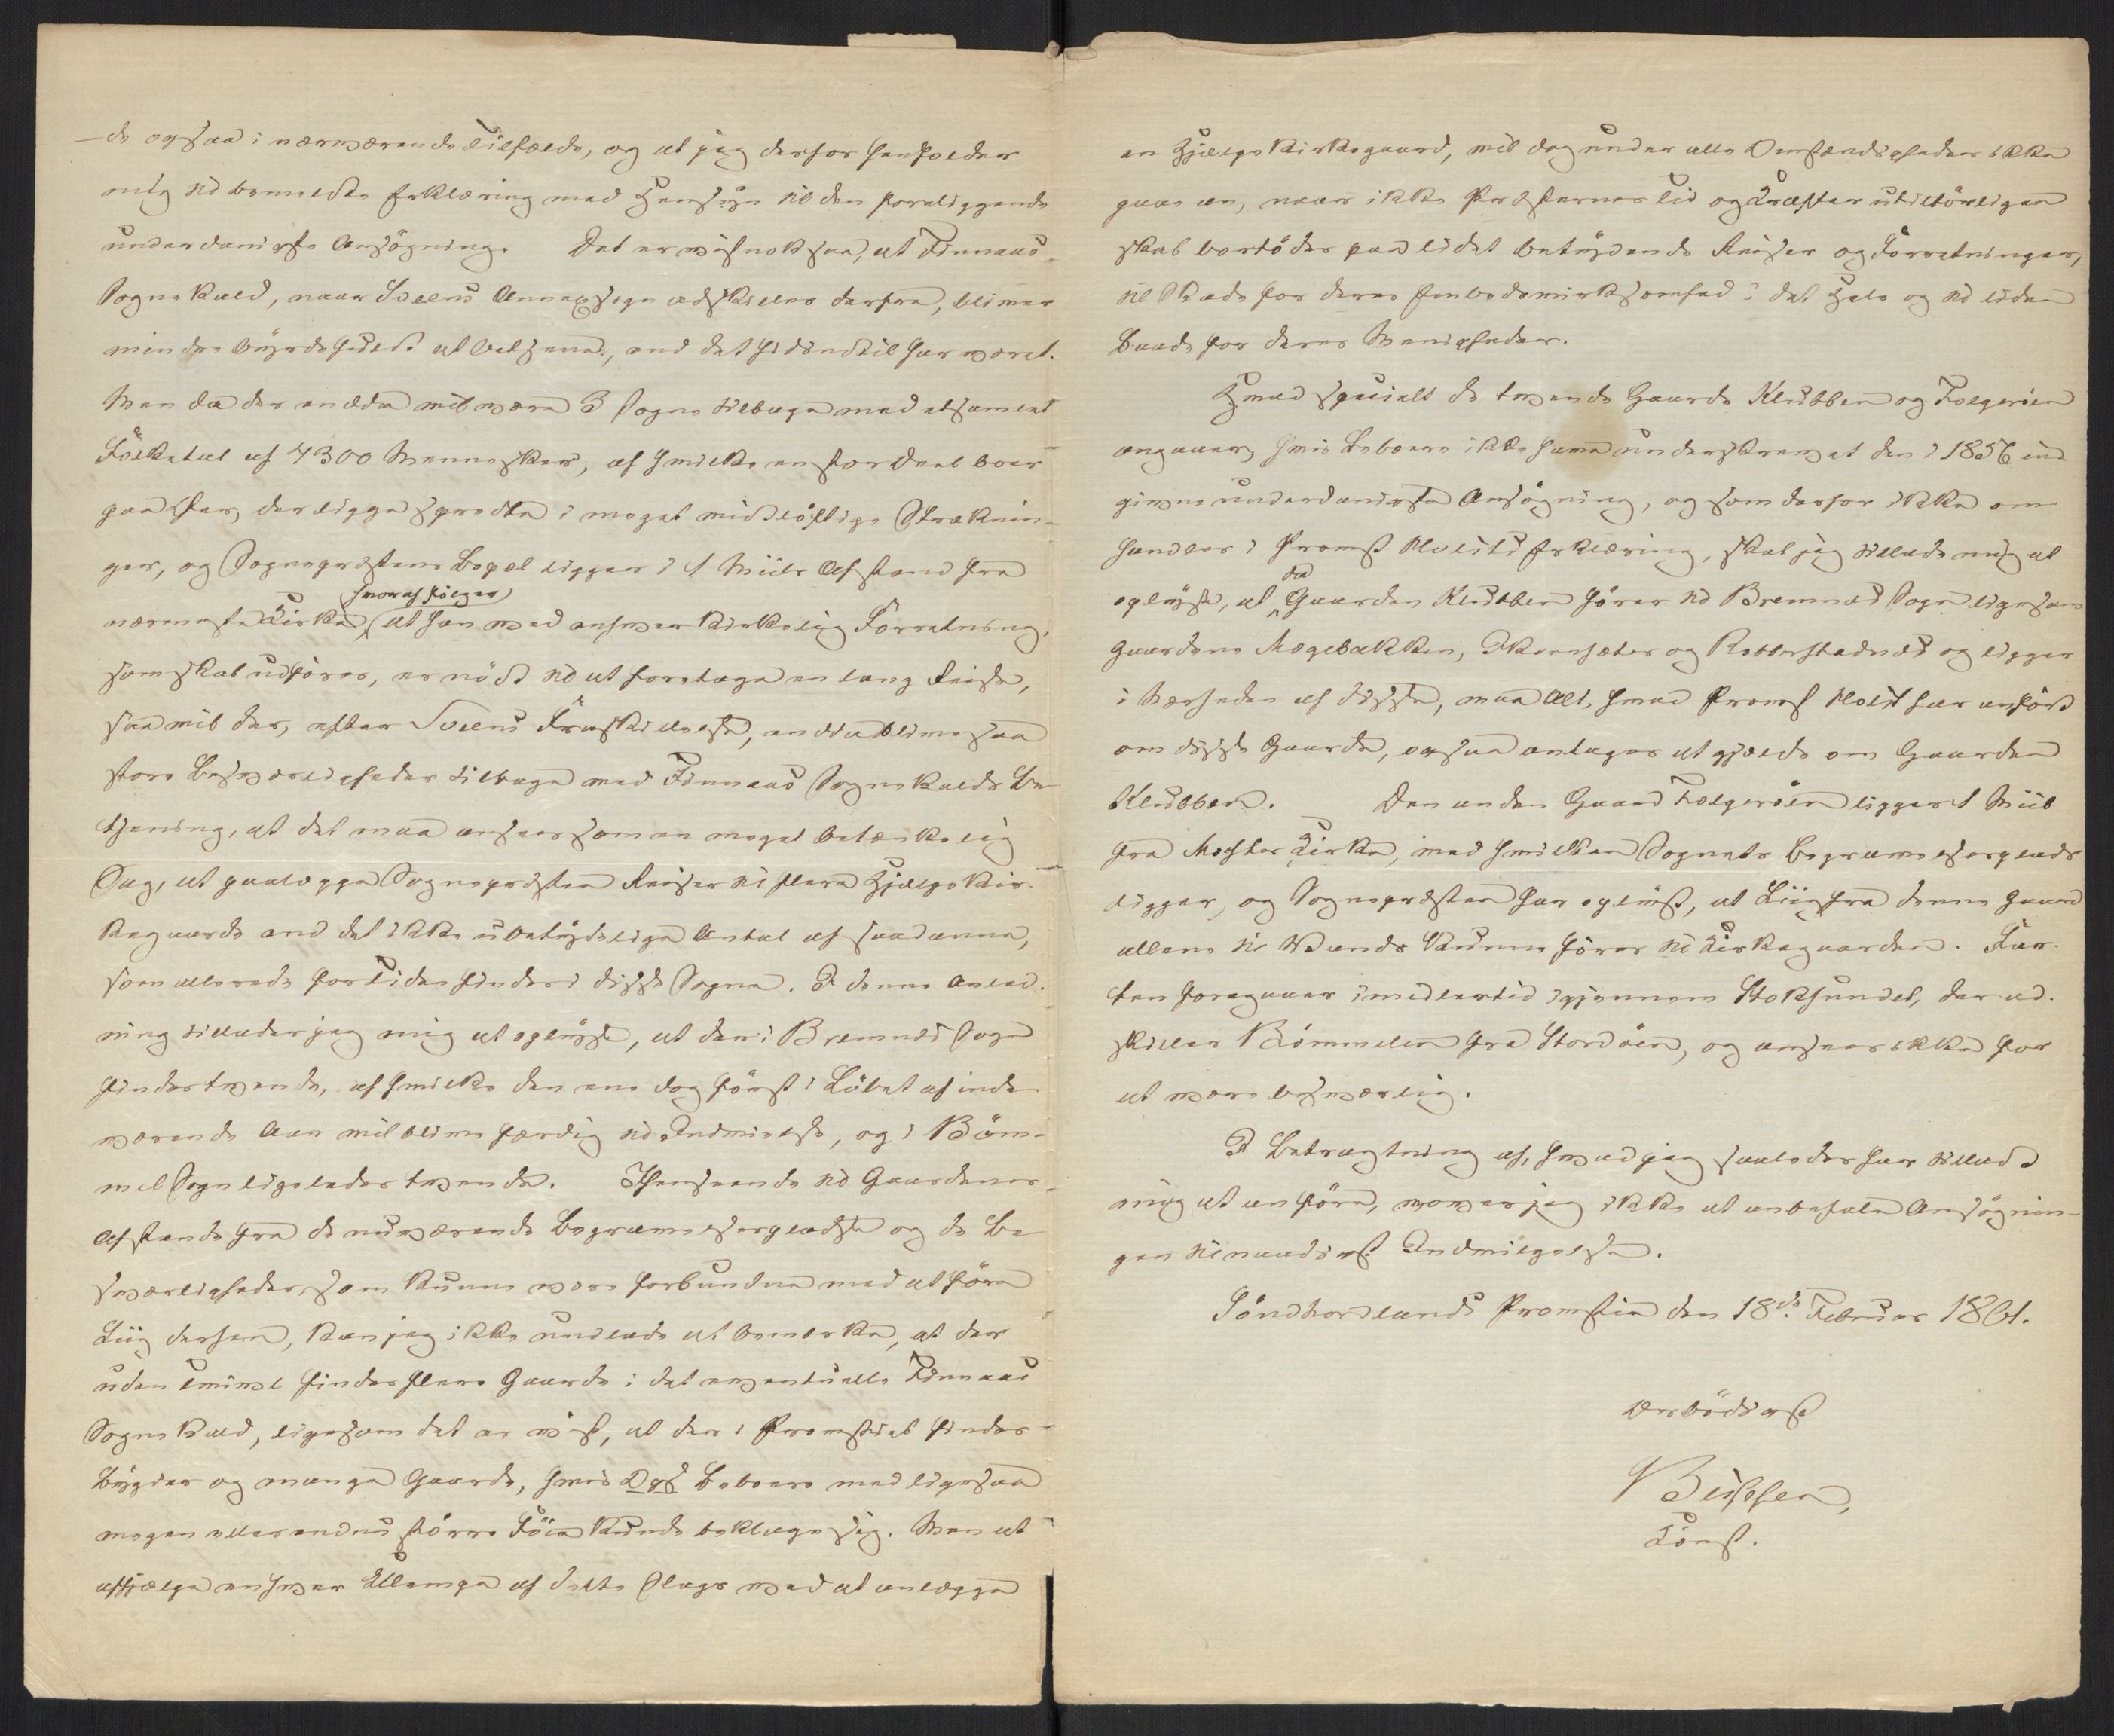 -de ogsaa i nærværende Tilfælde, og at jeg derfor henholder
mig til bemeldte Erklæring med Hensyn til den foreliggende
underdanigste Ansøgning. Det er vistnok saa, at Finnaas
Sognekald, naar Svens Annexsogn adskilles derfra, bliver
mindre byrdefuldt at betjene, end det hidindtil har været.
Men da der endda vil være 3 Sogne tilbage med et samlet
Folketal af 4300 Mennesker, af hvilke en stor Deel boer
paa Øer, der ligge spredte i meget vidtløftige Stræknin-
ger, og Sognepræstens Bopæl ligger i 1 Miils Afstand fra
nærmeste Kirke, (hvoraf følger) at han ved enhver kirkelig Forretning,
som skal udføres, er nødt til at foretage en lang Reise,
saa vil der, efter Svens Fraskillelse, endda blive saa
store Besværligheder tilbage med Finnaas Sognekalds Be-
tjening, at det maa ansees som en meget betænkelig
Sag, at paalægge Sognepræsten Reiser til flere Hjælpekir-
kegaarde end det ikke ubetydelige Antal af saadanne,
som allerede for Tiden findes i disse Sogne. I denne Anled-
ning tillader jeg mig at oplyse, at der i Bremnæs Sogn
findes tvende, af hvilke den ene dog først i Løbet af inde-
værende Aar vil blive færdig til Indvielse, og i Bøm-
mel Sogn ligeledes tvende. Henseende til Gaardenes
Afstande fra de nuværende Begravelsespladse og de Be-
sværligheder, som kunne være forbundne med at føre
Liig derhen, kan jeg ikke undlade at bemærke, at der
uden Tvivl findes flere Gaarde i det eventuelle Finnaas
Sognekald, ligesom det er vist, at der i Provstiet findes
Bygder og mange Gaarde, hvis Beboere med ligesaa
megen eller endnu større Føie kunde beklage sig. Men at
afhjælpe enhver Ulempe af dette Slags ved at anlægge
en Hjælpekirkegaard, vil dog under alle Omstændigheder ikke
gaae an, naar ikke Præsternes Tid og Kræfter utilbørligen
skal bortødes paa lidet betydende Reiser og Forretninger,
til Skade for deres Embedsvirksomhed i det Hele og til liden
Baade for deres Menigheder.
Hvad specielt de tvende Gaarde Klubben og Folgerøen
angaaer, hvis Beboere ikke have underskrevet den i 1856 ind-
givne underdanigste Ansøgning, og som derfor ikke om-
handles i Provst Holst's Erklæring, skal jeg tillade mig at
oplyse, at da Gaarden Klubben hører til Bremnæs Sogn ligesom
Gaardene Mægebakken, Skaansæter og Robberstadnæs og ligger
i Nærheden af disse, maa Alt, hvad Provst Holst har anført
om disse Gaarde, ogsaa antages at gjælde om Gaarden
Klubben. Den anden Gaard Folgerøen ligger 1 Miil
fra Moster Kirke, ved hvilken Sognets Begravelsesplads
ligger, og Sognepræsten har oplyst, at Liig fra denne Gaard
allene til Vands kunne føres til Kirkegaarden. Far-
ten foregaaer imidlertid igjennem Stoksundet, der ad-
skiller Bømmeløen fra Stordøen, og ansees ikke for
at være besværlig.
I Betragtning af, hvad jeg saaledes har tilladt
mig at anføre, vover jeg ikke at anbefale Ansøgnin-
gen til naadigst Indvilgelse.
Søndhordlands Provstie den 18de Februar 1861.
Ærbødigst
Const.